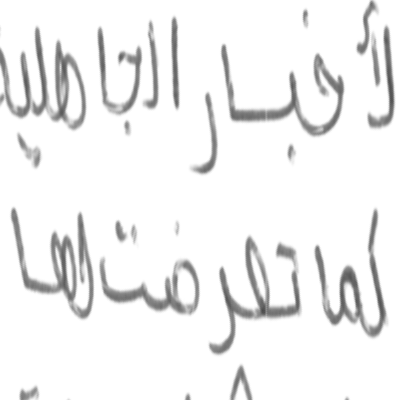 لأخبار الجاهلية
كما تعرضت لها